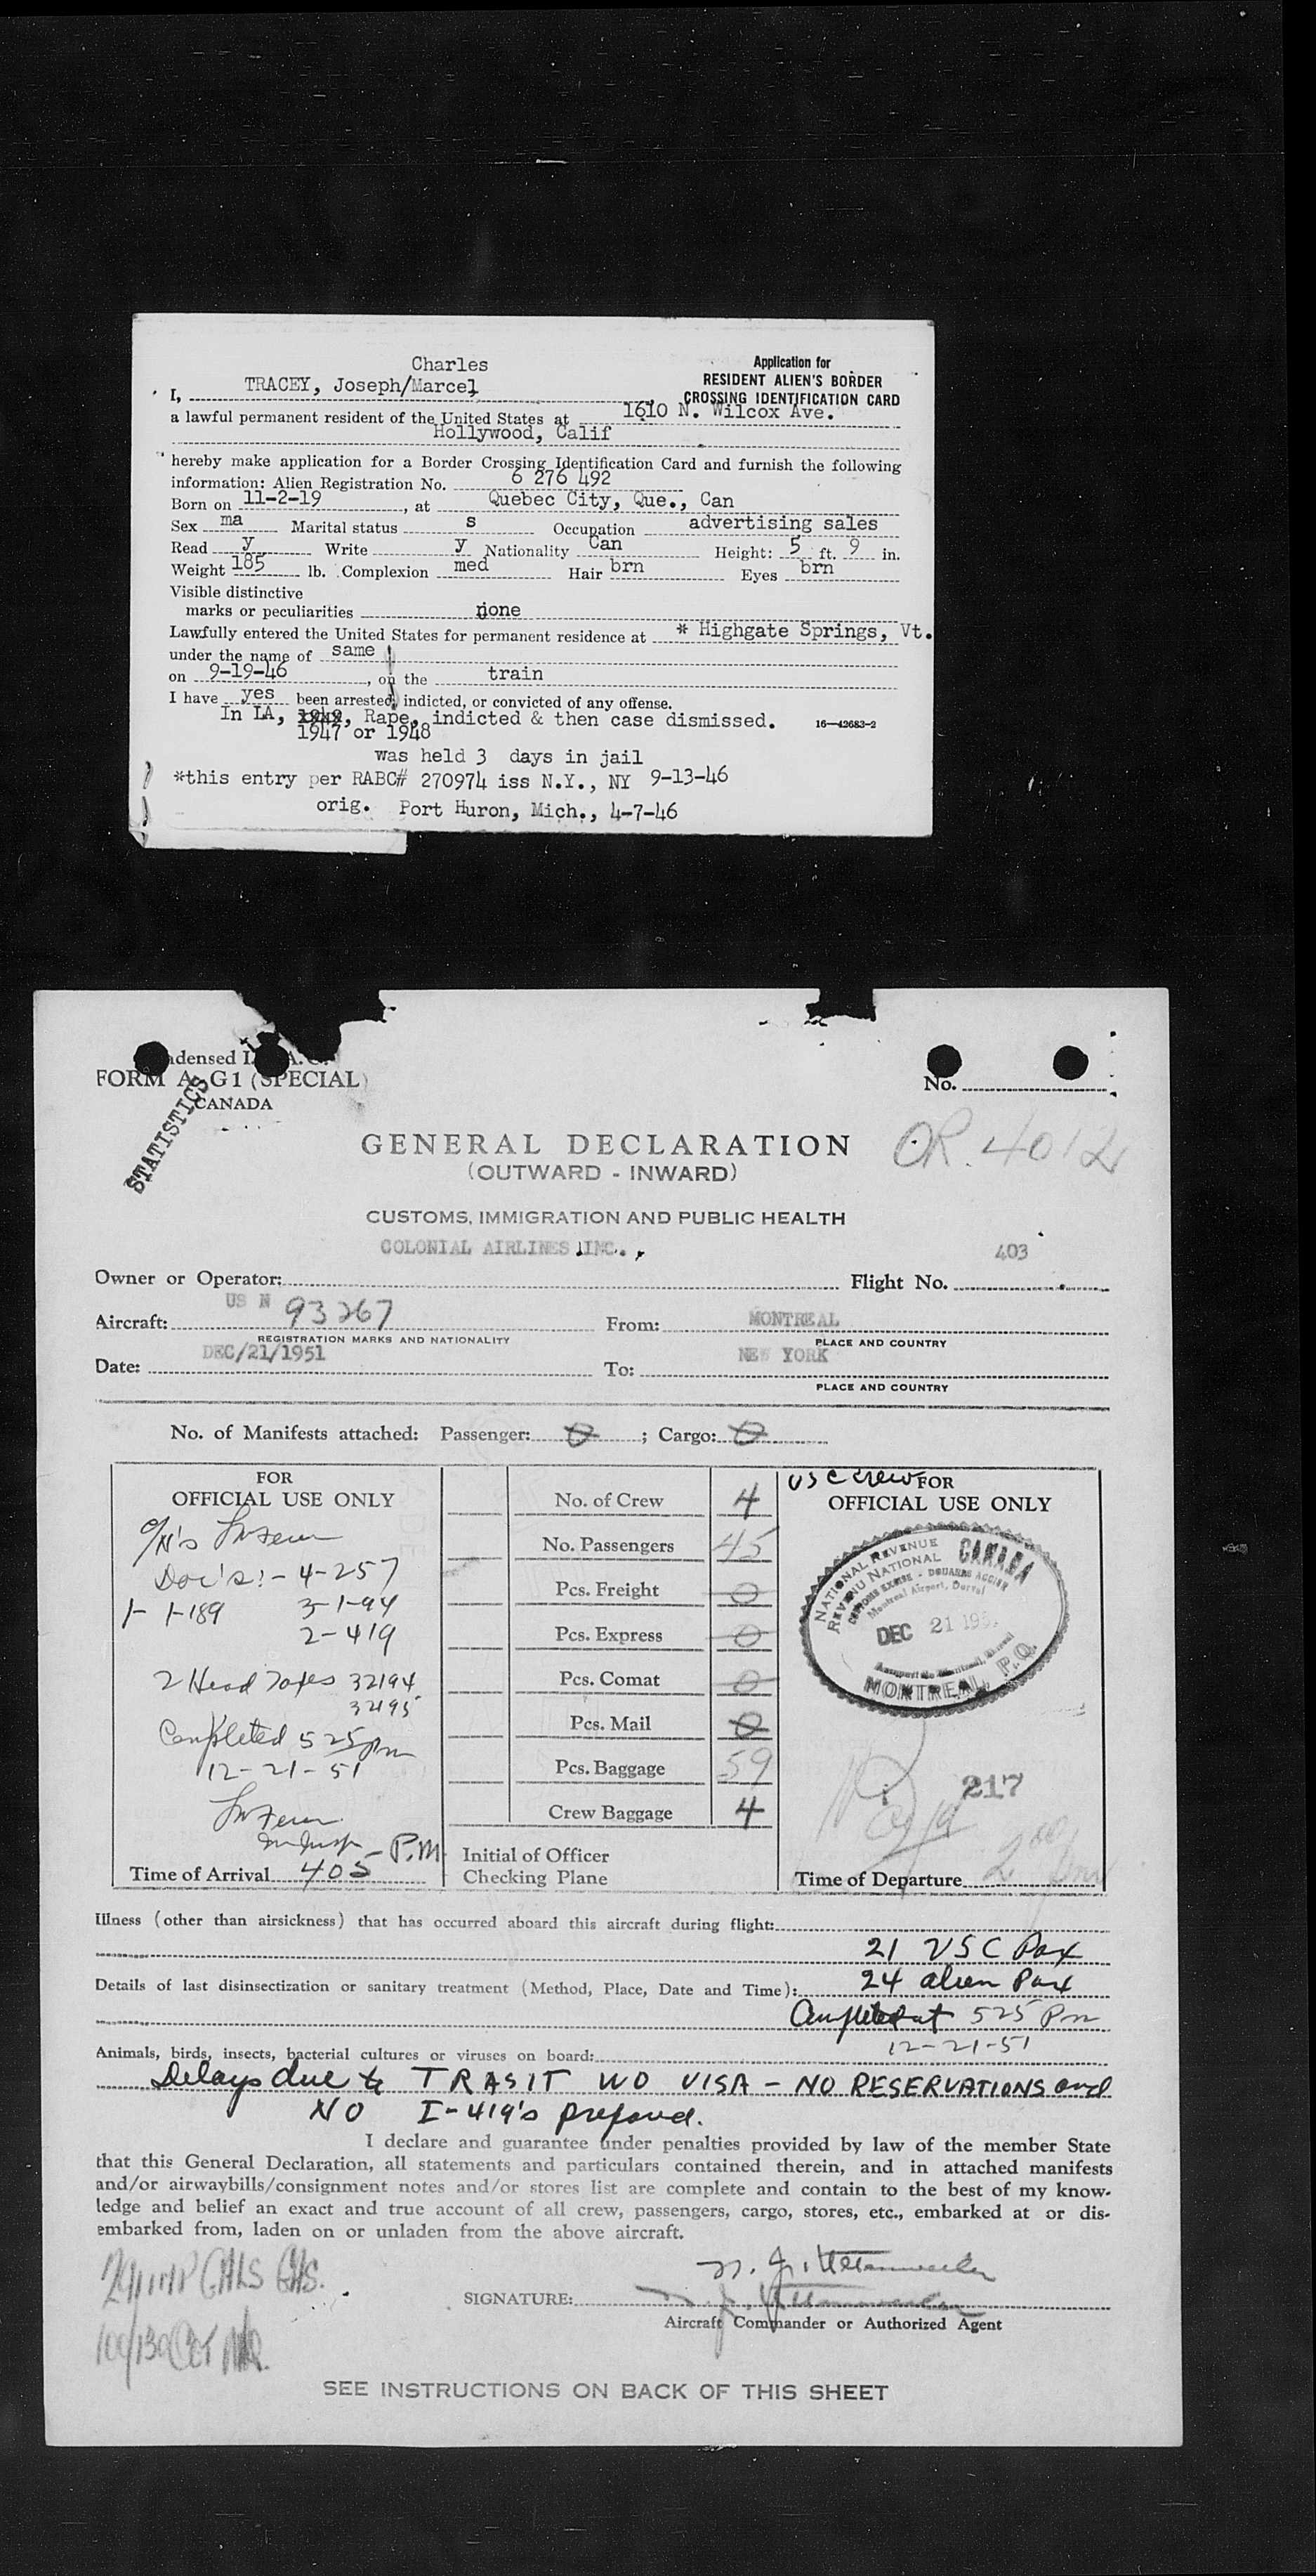 Charles
TRACEY, Joseph/Marcel
I,
Application for
RESIDENT ALIEN'S BORDER
CROSSING IDENTIFICATION CARD
a lawful permanent resident of the United States at 1610 N. Wilcox Ave.
Hollywood, Calif
hereby make application for a Border Crossing Identification Card and furnish the following
information: Alien Registration No. 6 276 492
Born on 11-2-19, at Quebec City, Que., Can
Sex ma Marital status s Occupation advertising sales
Read y Write y Nationality Can Height: 5 ft. 9 in.
Weight 185 lb. Complexion med Hair brn Eyes brn
Visible distinctive
marks or peculiarities none
Lawfully entered the United States for permanent residence at * Highgate Springs, Vt.
under the name of same
on 9-19-46, on the train
I have yes been arrested, indicted, or convicted of any offense.
In LA, Rape, indicted & then case dismissed. 16-42683-2
1947 or 1948
was held 3 days in jail
*this entry per RABC# 270974 iss N.Y., NY 9-13-46
orig. Port Huron, Mich., 4-7-46
FORM A G1 (SPECIAL)
CANADA
STATISTICS
No.
OR. 4012
GENERAL DECLARATION
(OUTWARD - INWARD)
CUSTOMS, IMMIGRATION AND PUBLIC HEALTH
COLONIAL AIRLINES INC., 403
Owner or Operator: Flight No.
Aircraft: US N 93267 From: MONTREAL
REGISTRATION MARKS AND NATIONALITY PLACE AND COUNTRY
Date: DEC/21/1951 To: NEW YORK
PLACE AND COUNTRY
No. of Manifests attached: Passenger: 0 ; Cargo: 0
FOR
OFFICIAL USE ONLY
Doc's:- 4-257
1- 1-189 3-1-94
2-419
2 Head Taxes 32194
32195
Completed 525 pm
12-21-51
P.M.
Time of Arrival 405
No. of Crew 4
No. Passengers 45
Pcs. Freight 0
Pcs. Express 0
Pcs. Comat 0
Pcs. Mail 0
Pcs. Baggage 59
Crew Baggage 4
Initial of Officer
Checking Plane
USC crew FOR
OFFICIAL USE ONLY
NATIONAL REVENUE
REVENU NATIONAL
CANADA
CUSTOMS EXCISE - DOUANES ACCISE
Montreal Airport, Dorval
DEC 21 195
MONTREAL, P.Q.
217
Time of Departure 2 00 pm
Illness (other than airsickness) that has occurred aboard this aircraft during flight:
21 USC Pax
Details of last disinsectization or sanitary treatment (Method, Place, Date and Time): 24 alien Pax
Completed at 525 Pm
12-21-51
Animals, birds, insects, bacterial cultures or viruses on board:
Delays due to TRASIT WO VISA - NO RESERVATIONS and
NO I-419's prepared.
I declare and guarantee under penalties provided by law of the member State
that this General Declaration, all statements and particulars contained therein, and in attached manifests
and/or airwaybills/consignment notes and/or stores list are complete and contain to the best of my know-
ledge and belief an exact and true account of all crew, passengers, cargo, stores, etc., embarked at or dis-
embarked from, laden on or unladen from the above aircraft.
SIGNATURE:
Aircraft Commander or Authorized Agent
SEE INSTRUCTIONS ON BACK OF THIS SHEET